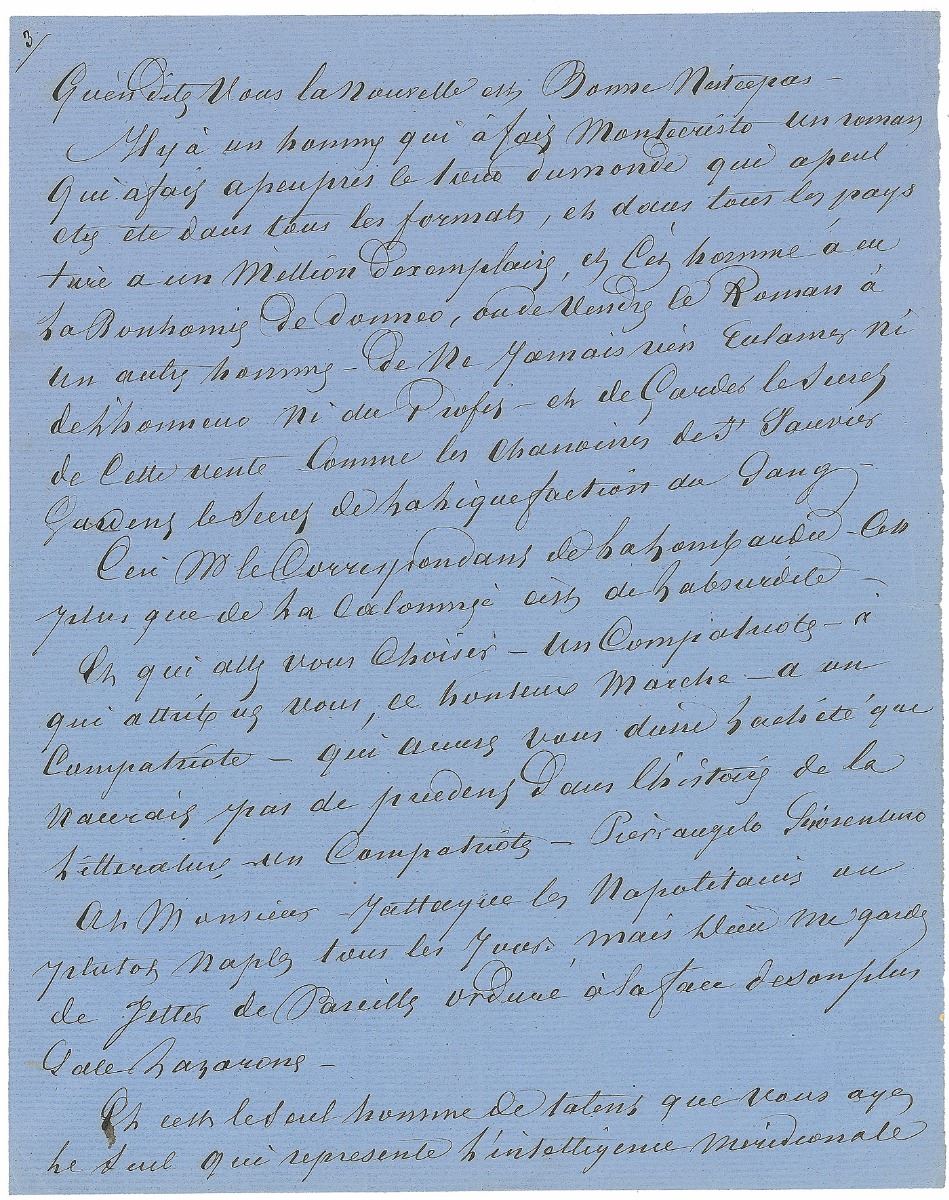 3/
Qu'en ditez Vous la nouvelle est Bonne N'estcepas –
Il y à un homme qui à fait Montecristo un roman
qui a fait apeuprés le tour dumonde qui apeut
etre ete dans tous les formats, et dans tous les pays
tiré a un Million d'exemplaire, et Cet homme à eu
La Bonhomie de donner, ou de Vendre le Roman à
un autre homme – de Ne Jamais rien reclamer ni
de l'honneur Ni du Profit – et de Garder le Secret
de Cette vente Comme les Chanoines de St Janvier
Gardent le Secret de La Liquefaction du Sang –
Ceci Mr le Correspondant de La Lombardie – Cest
plus que de La Calomnie c'est de L'absurdité –
Et qui allez vous Choisir – Un Compatriote – à
qui attribuez vous, ce honteux Marche – a un
Compatriote – qui aurait vous dune Lacheté qui
Naurait pas de precedent Dans l'histoire de la
Litterature – un Compatriote – Pier'angelo Fiorentino
Ah Monsieur – J'attaque les Napolitains ou
plutot Naples tous les Jours, mais Dieu Me garde
de Jetter de Pareille ordure à la face deson plus
Sale Lazarone –
Et cest le Seul homme de talent que vous ayez
Le Seul qui represente L'intelligence Méridionale